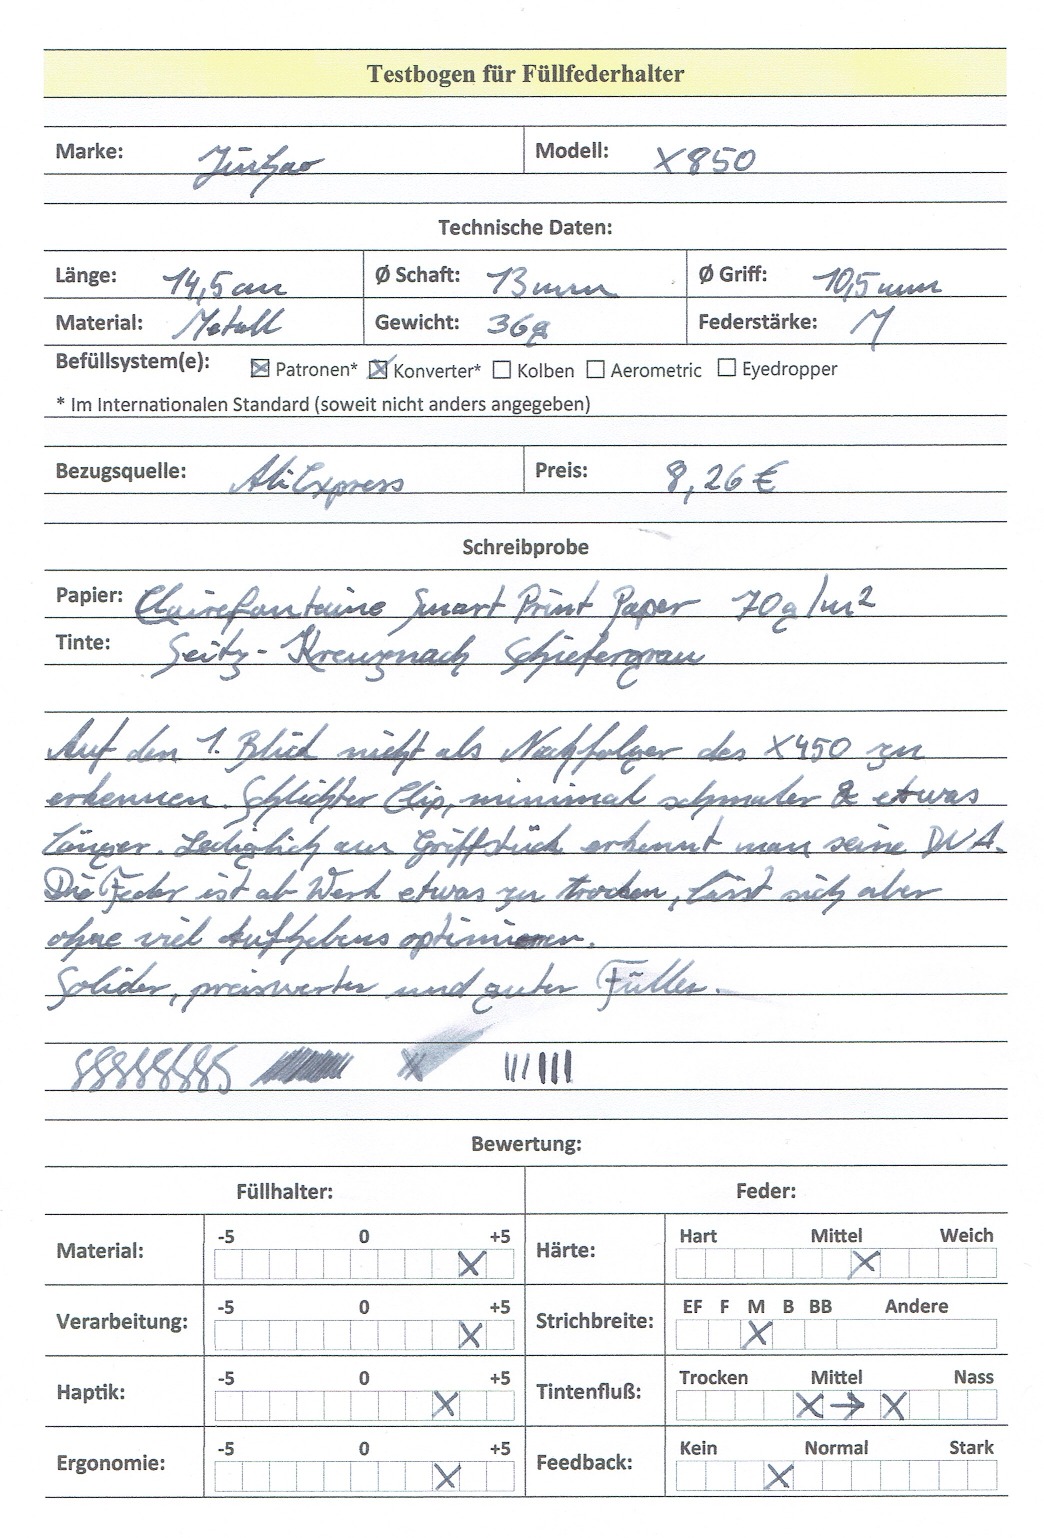 Testbogen für Füllfederhalter
Marke: Jinhao Modell: X850
Technische Daten:
Länge: 14,5cm Ø Schaft: 13mm Ø Griff: 10,5mm
Material: Metall Gewicht: 36g Federstärke: M
Befüllsystem(e): ☒ Patronen* ☒ Konverter* ☐ Kolben ☐ Aerometric ☐ Eyedropper
* Im Internationalen Standard (soweit nicht anders angegeben)
Bezugsquelle: AliExpress Preis: 8,26 €
Schreibprobe
Papier: Clairefontaine Smart Print Paper 70g/m²
Tinte: Seitz-Kreuznach Schiefergrau
Auf den 1. Blick nicht als Nachfolger des X450 zu
erkennen. Schlichter Clip, minimal schmaler & etwas
länger. Lediglich am Griffstück erkennt man seine DNA.
Die Feder ist ab Werk etwas zu trocken, lässt sich aber
ohne viel Aufhebens optimieren.
Solider, preiswerter und guter Füller.
Bewertung:
Füllhalter: Feder:
-5 0 +5 Hart Mittel Weich
Material: X Härte: X
-5 0 +5 EF F M B BB Andere
Verarbeitung: X Strichbreite: X
-5 0 +5 Trocken Mittel Nass
Haptik: X Tintenfluß: X → X
-5 0 +5 Kein Normal Stark
Ergonomie: X Feedback: X